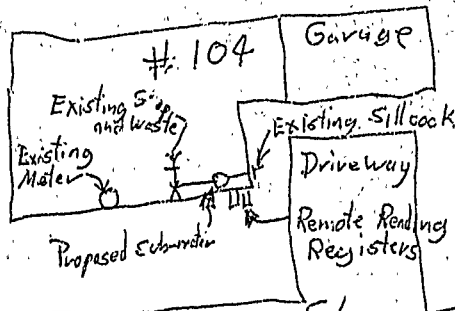 #. 104
Garage
Existing Stop
and Waste
Existing Sillcock
Existing
Meter
Driveway
Proposed submeter
Remote Reading
Registers